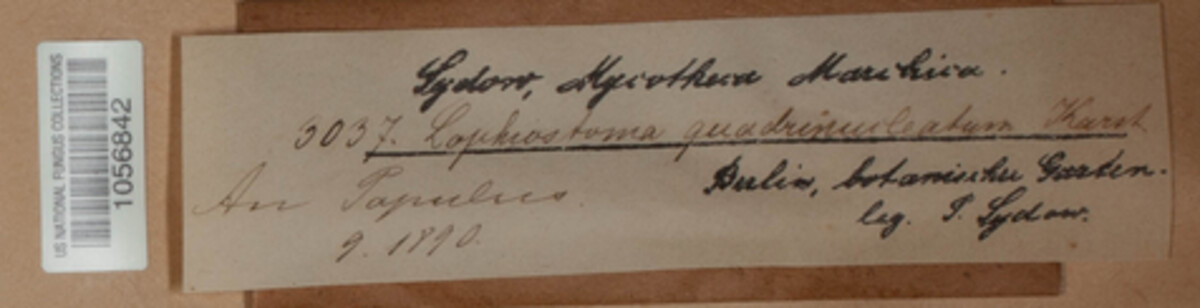 US NATIONAL FUNGUS COLLECTIONS
1056842
Sydow, Mycotheca Marchica.
3037. Lophiostoma quadrinucleatum Karst
An Populus.
9. 1890.
Berlin, botanischer Garten.
leg. P. Sydow.